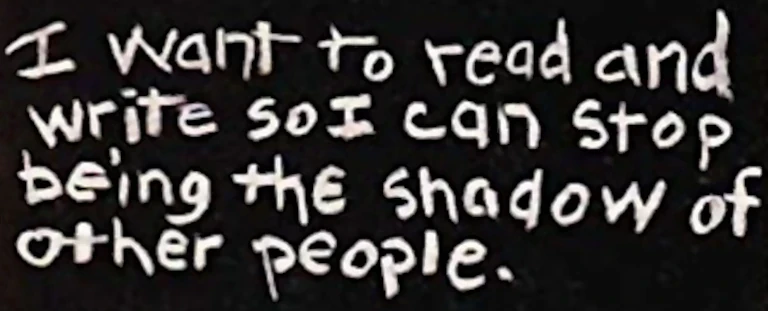 I want to read and
write so I can stop
being the shadow of
other people.